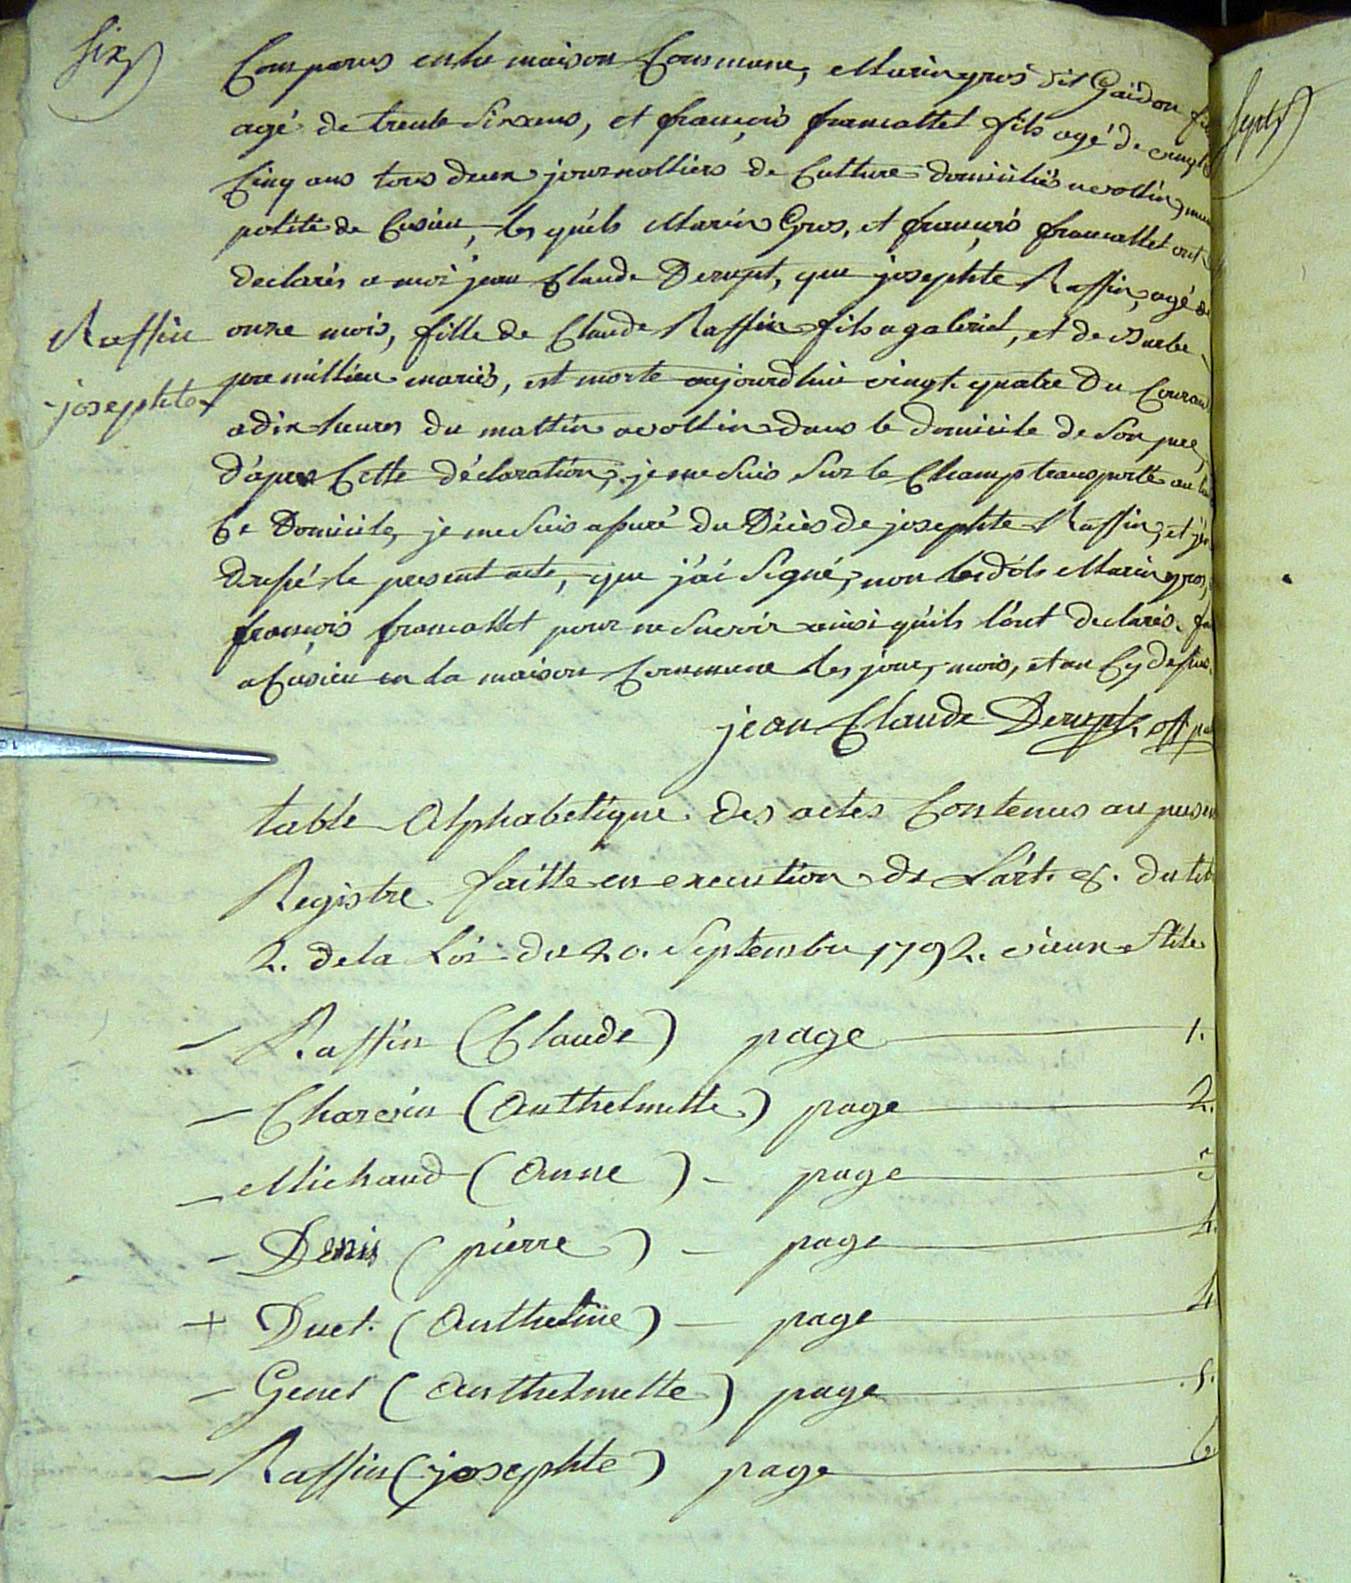 six
sept
Comparus en la maison Commune, Marin gros dit Gaidon fil
agé de trente six ans, et françois francallet fils agé de vingt
Cinq ans tous deux journalliers de Culture domiciliés a vollin, muni
palité de Cusieu, les quels Marin Gros, et françois francallet ont
declarés a moi jean Claude Derupt, que josephte Raffin, agé de
onze mois, fille de Claude Raffin fils a gabriel, et de Barbe
premillieu mariés, est morte aujourdhui vingt quatre du Courant
a dix heures du mattin a vollin dans le domicile de son pere,
d'apres Cette déclaration, je me suis sur le Champ transporté au
Ce Domicile, je me suis assuré du Décès de josephte Raffin, et j'en
Raffin
josephte
dressé le present acte, que j'ai signé, non lesdits Marin gros,
françois francallet pour ne savoir ainsi qu'ils l'ont declarés. fai
a Cusieu en la maison Commune les jour, mois, et an Cy dessus.
jean Claude Derupt off pu
table Alphabetique des actes Contenus au presen
Registre faitte en execution de L'art. 8. du tit
2. de la Loi du 20. Septembre 1792. vieux stile
– Raffin (Claude) page 1.
– Charvin (Anthelmette) page 2.
– Michaud (Anne) – page 3
– Denis (pierre) – page 4.
+ Duet. (Anthelme) – page 4
– Genet (Anthelmette) page .5.
– Raffin (josephte) page 6